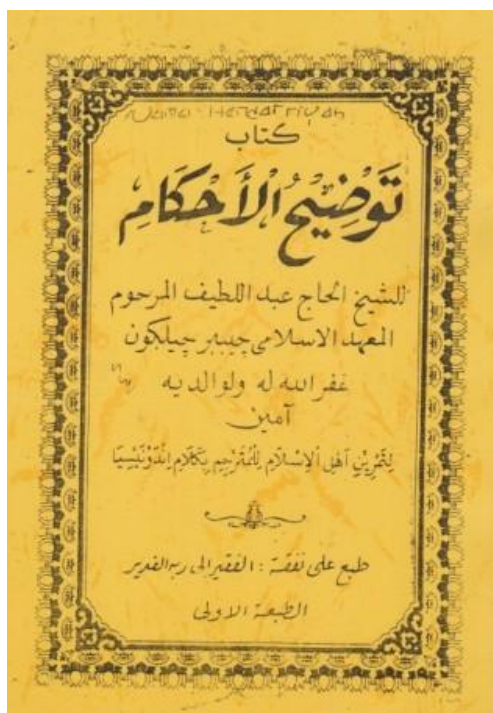 كتاب
تَوْضِيْحُ الْأَحْكَامِ
للشيخ الحاج عبد اللطيف المرحوم
المعهد الاسلامي چيببر چيلكون
غفر الله له ولوالديه
آمين
لِتَمْرِيْنِ اَهْلِ الْاِسْلَامِ لِلْمُتَرْجِمِ بِكَلَامِ اِنْدَوْنَيْسِيَا
طبع على نفقة : الفقير الى ربه القدير
الطبعة الاولى